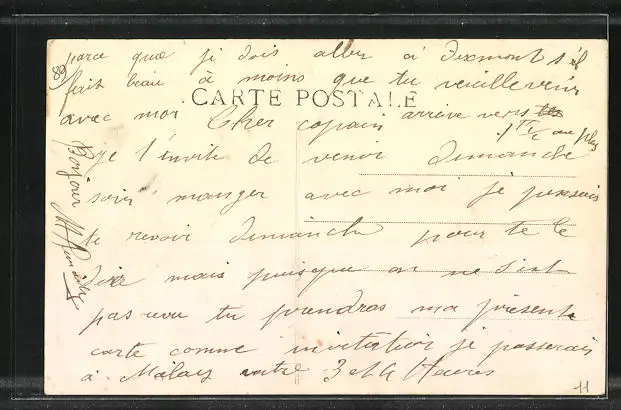 parce que je dois aller à Dixmont s'il
fait beau à moins que tu veuille venir
CARTE POSTALE
avec moi
Cher copain arrive vers
1 h 1/2 au plus
je t'invite de venir dimanche
soir manger avec moi je pensais
te revoir dimanche pour te le
dire mais puisque on ne s'est
pas revu tu prendras ma présente
carte comme invitation je passerais
à Mâlay entre 3 et 4 Heures
Bonjour
89
11